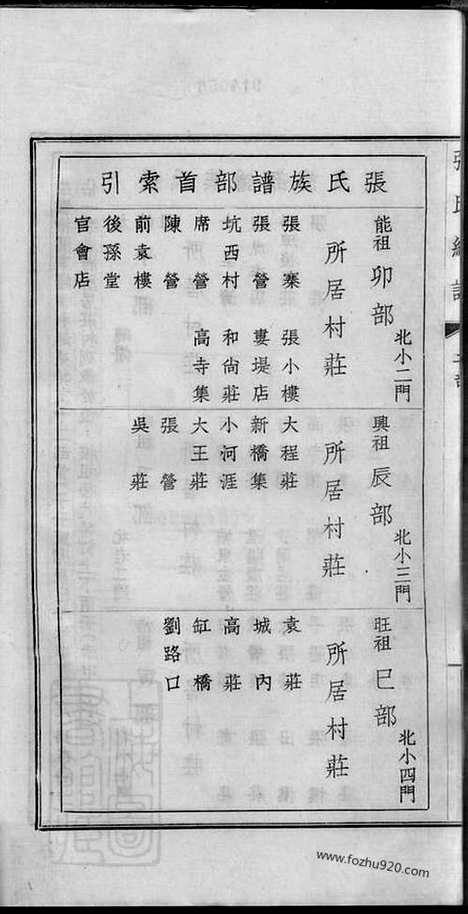 張氏族譜部首索引
能祖 卯部 北小二門
所居村莊
張寨 張小樓
張營 婁堤店
坑西村 和尙莊
席營 高寺集
陳營
前袁樓
後孫堂
官會店
興祖 辰部 北小三門
所居村莊
大程莊
新橋集
小河涯
大王莊
張營
吳莊
旺祖 巳部 北小四門
所居村莊
袁莊
城內
高莊
缸橋
劉路口
www.fozhu920.com